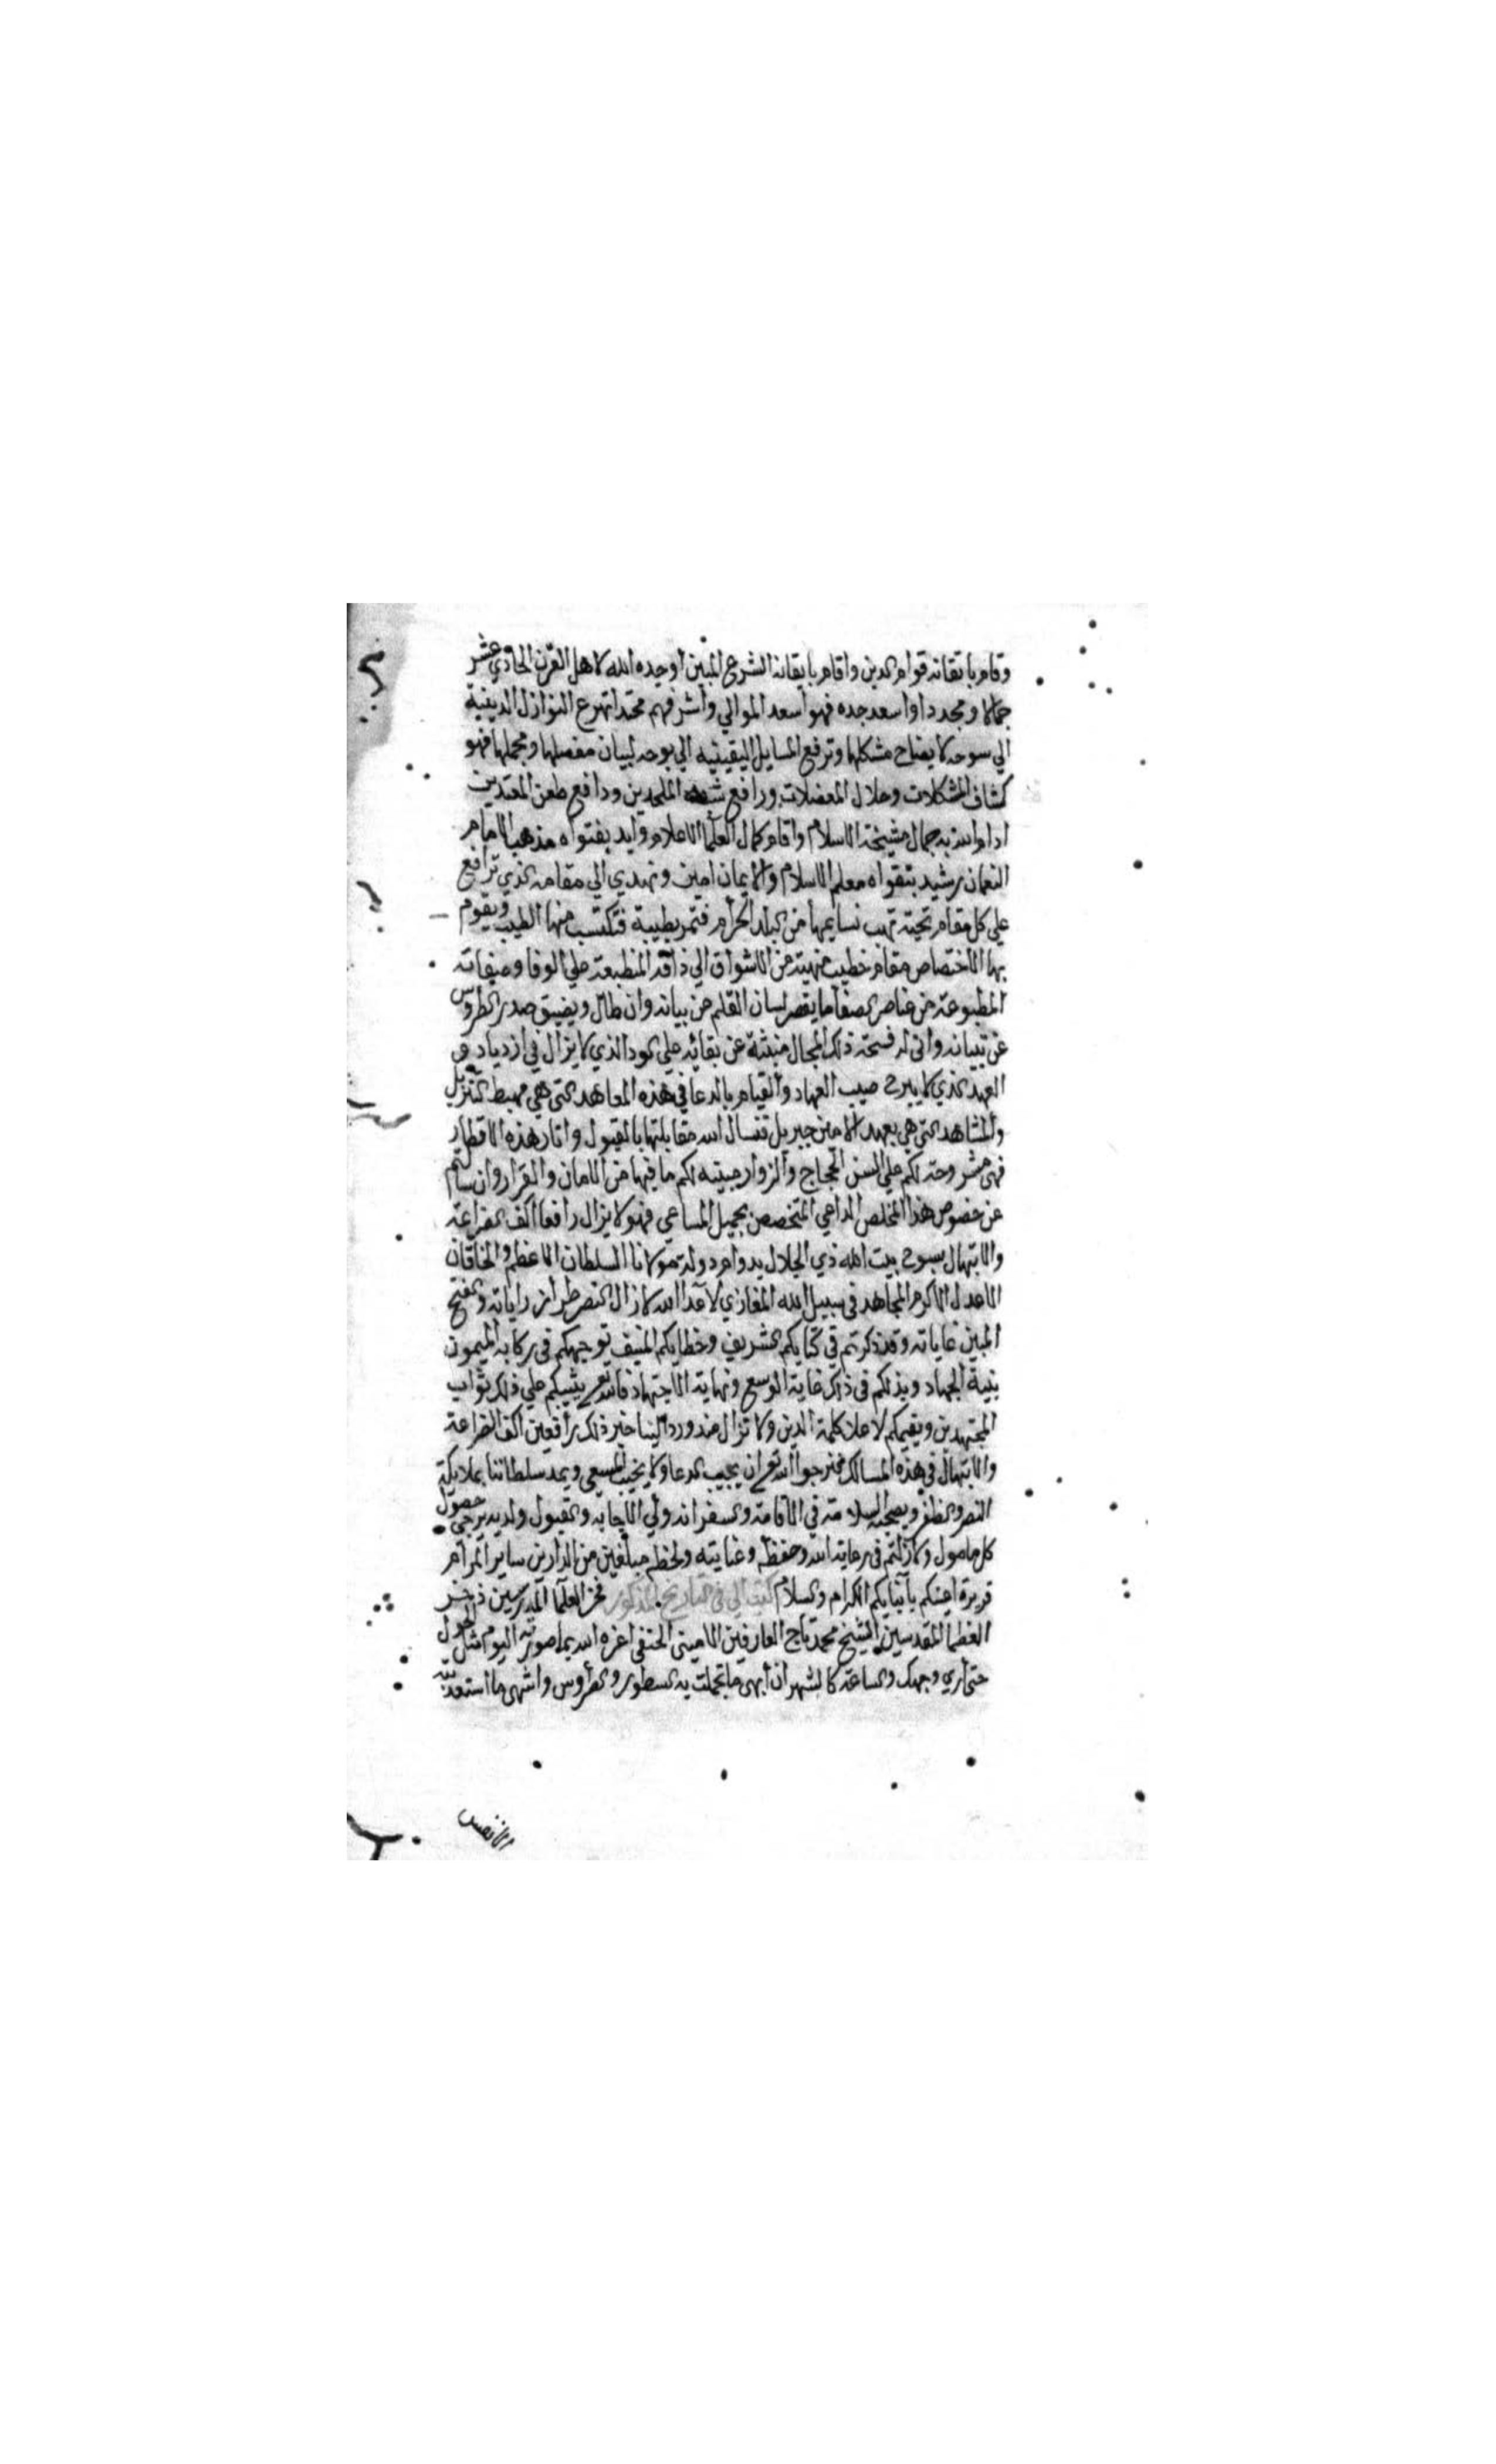 وقام باتقانه قوام الدين واقام بايقانه الشرع المبين اوجده الله لاهل القرن الحادي عشر
جمالا ومجددا واسعد جده فهو اسعد الموالي واشرفهم محتدا تهرع النوازل الدينية
الي سوحه لايضاح مشكلها وترفع المسايل اليقينيه الي بوحه لبيان مفصلها ومجملها فهو
كشاف المشكلات وحلال المعضلات ورافع شبه الملحدين ودافع طعن المعتدين
ادام الله به جمال مشيخة الاسلام واقام كمال العلما الاعلام وايد بفتواه مذهب الامام
النعمان وشيد بتقواه معلم الاسلام والايمان امين ونهدي الي مقامه الذي ترافع
علي كل مقام تحية تهب نسايمها من البلد الحرام فتمر بطيبة فتكتسب منها الطيب ويقوم
بها الاختصاص مقام خطيب منهية من الاشواق الي ذاته المنطبعة علي الوفا وصفاته
المطبوعة من عناصر الصفا ما يقصر لسان القلم عن بيانه وان طال ويضيق صدر الطروس
عن تبيانه واني له فسحة ذلك المجال منبئة عن بقائه علي الود الذي لا يزال في ازدياد و
العهد الذي لا يبرح صيب العهاد والقيام بالدعا في هذه المعاهد التي هي مهبط التنزيل
والمشاهد التي هي بعهد الامين جبريل فنسال الله مقابلتها بالقبول واثار هذه الاقطار
فهي مشروحة لكم علي السن الحجاج والزوار مبينه لكم ما فيها من الامان والقرار وان سالتم
عن خصوص هذا المخلص الداعي المتخصص بجميل المساعي فهو لا يزال رافعا اكف الضراعة
والابتهال بسوح بيت الله ذي الجلال بدوام دولة مولانا السلطان الاعظم والخاقان
الاعدل الاكرم المجاهد في سبيل الله المغازي لاعدا الله لا زال النصر طراز راياته والفتح
المبين غاياته وقد ذكرتم في كتابكم الشريف وخطابكم المنيف توجهكم في ركابه الميمون
بنية الجهاد وبذلكم في ذلك غاية الوسع ونهاية الاجتهاد فالله تع يثيبكم علي ذلك ثواب
المجتهدين ويقيمكم لاعلا كلمة الدين ولا نزال منذ ورد الينا خبر ذلك رافعين اكف الضراعة
والابتهال في هذه المسالك فنرجوا الله تع ان يجيب الدعا ولا يخيب المسعي ويمد سلطاننا بملايكة
النصر والظفر ويصحبه السلامة في الاقامة والسفر انه ولي الاجابه والقبول ولديه يرجي حصول
كل مامول ولا زلتم في رعاية الله وحفظه وعنايته ولحظه مبلغين من الدارين ساير المرام
قريرة اعينكم بابنايكم الكرام والسلام كتب الي في التاريخ المذكور فخر العلما المدرسين ذخر
العظما المقدسين الشيخ محمد تاج العارفين الاميني الحنفي اعزه الله بما صورته اليوم مثل الحول
حتي اري وجهك والساعة كالشهر ان ابهي ما تجملت به السطور والطروس واشهي ما استعدته
الانفس